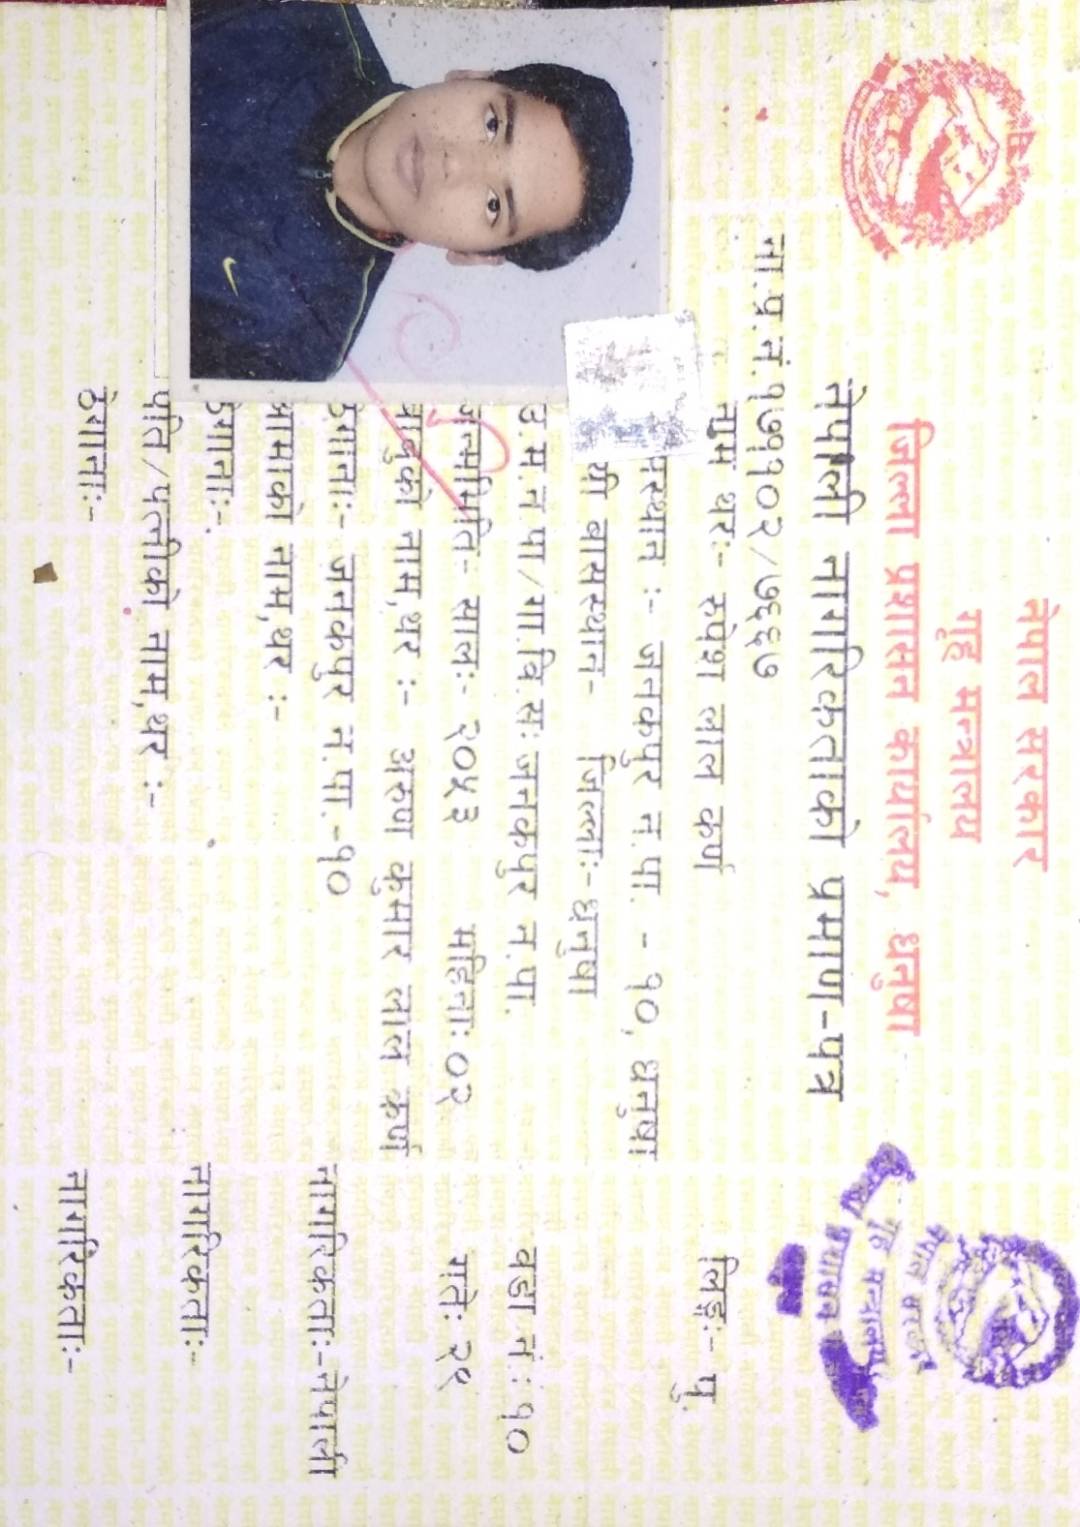 नेपाल सरकार
गृह मन्त्रालय
जिल्ला प्रशासन कार्यालय, धनुषा
नेपाली नागरिकताको प्रमाण-पत्र
ना.प्र.नं.१७११०२/७६६७
नाम थर:- रुपेश लाल कर्ण लिङ्ग:- पु.
स्थान :- जनकपुर न.पा. - १०, धनुषा
यी बासस्थान- जिल्ला:-धनुषा
उ.म.न.पा/गा.वि.स: जनकपुर न.पा. वडा नं : १०
जन्ममिति- साल:- २०५३ महिना: ०२ गते: २९
बाबुको नाम,थर :- अरुण कुमार लाल कर्ण
ठेगाना:- जनकपुर न.पा.-१० नागरिकता:-नेपाली
आमाको नाम,थर :-
ठेगाना:- नागरिकता:-
पति/पत्नीको नाम,थर :-
ठेगाना:- नागरिकता:-
नेपाल सरकार
गृह मन्त्रालय
प्रशासन